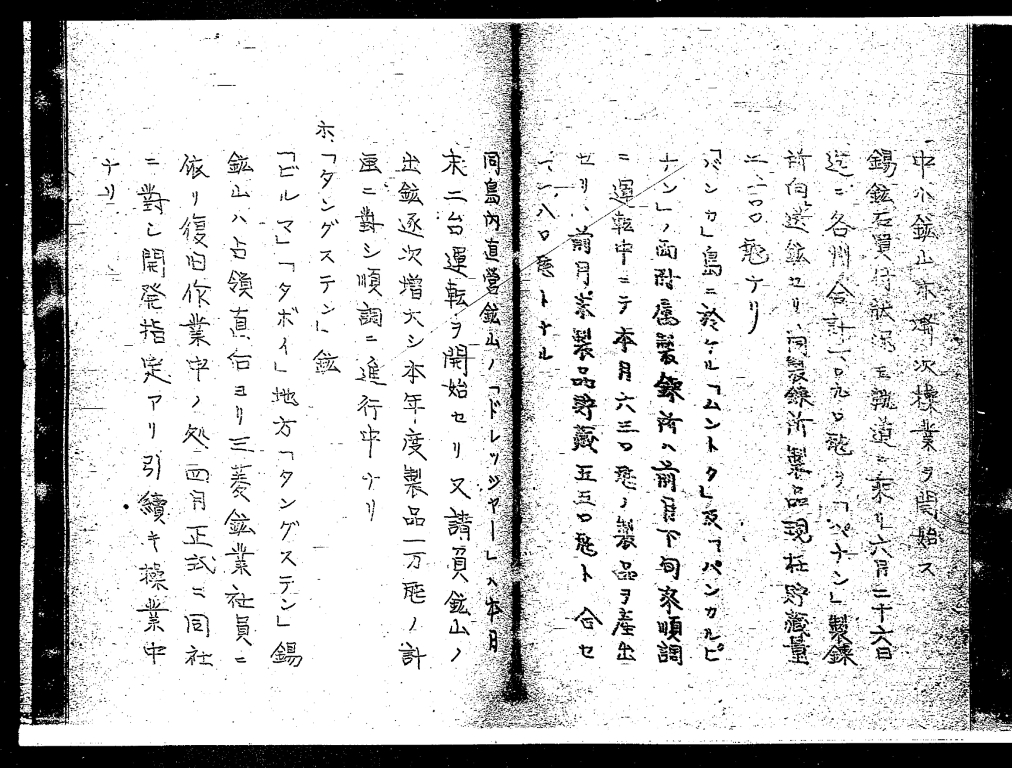 中小鉱山亦漸次操業ヲ開始ス
錫鉱石買付状況モ軌道ニ乗リ六月二十六日
迄ニ各州合計一〇九〇瓲ヲ「ペナン」製錬
所向送鉱セリ、同製錬所製品現在貯蔵量
二、二〇〇瓲ナリ
「バンカ」島ニ於ケル「ムントク」及「パンカルピ
ナン」ノ両附属製錬所ハ前月下旬来順調
ニ運転中ニテ本月六三〇瓲ノ製品ヲ産出
セリ、前月末製品貯蔵五五〇瓲ト合セ
一、一八〇瓲トナル
同島内直営鉱山ノ「ドレッジャー」ハ本月
末二台運転ヲ開始セリ又請負鉱山ノ
出鉱逐次増大シ本年度製品一万瓲ノ計
画ニ對シ順調ニ進行中ナリ
ホ、「タングステン」鉱
「ビルマ」「タボイ」地方「タングステン」錫
鉱山ハ占領直后ヨリ三菱鉱業社員ニ
依リ復旧作業中ノ処四月正式ニ同社
ニ對シ開発指定アリ引續キ操業中
ナリ